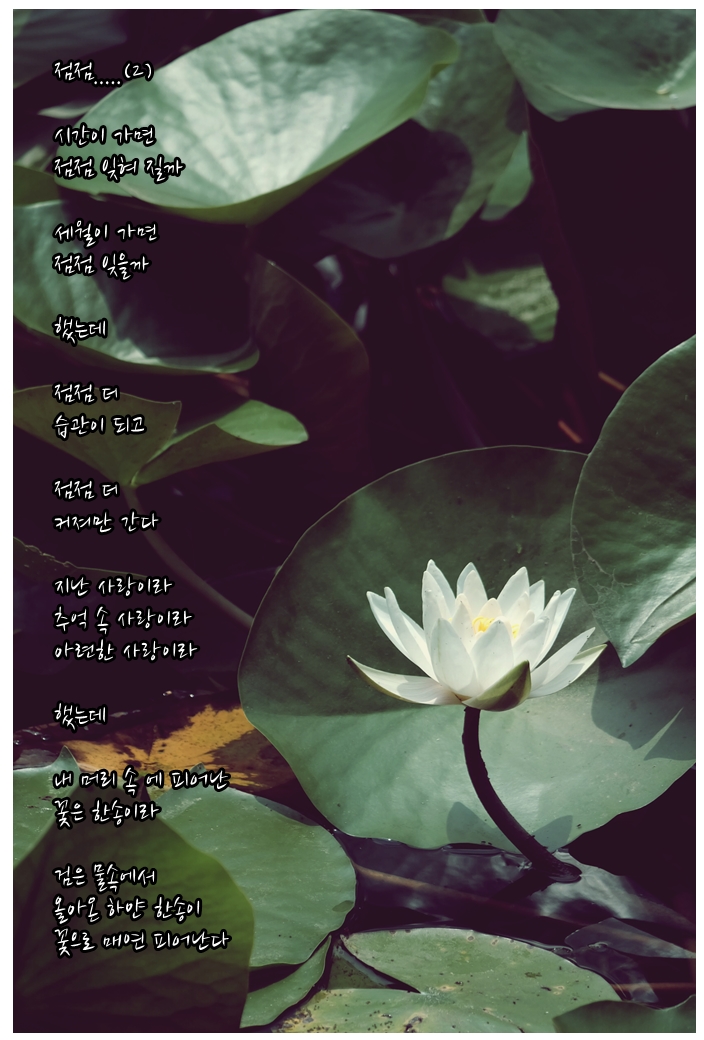 점점.....(2)
시간이 가면
점점 잊혀 질까
세월이 가면
점점 잊을까
했는데
점점 더
습관이 되고
점점 더
커져만 간다
지난 사랑이라
추억 속 사랑이라
아련한 사랑이라
했는데
내 머리 속 에 피어난
꽃은 한송이라
검은 물속에서
올아온 하얀 한송이
꽃으로 매연 피어난다